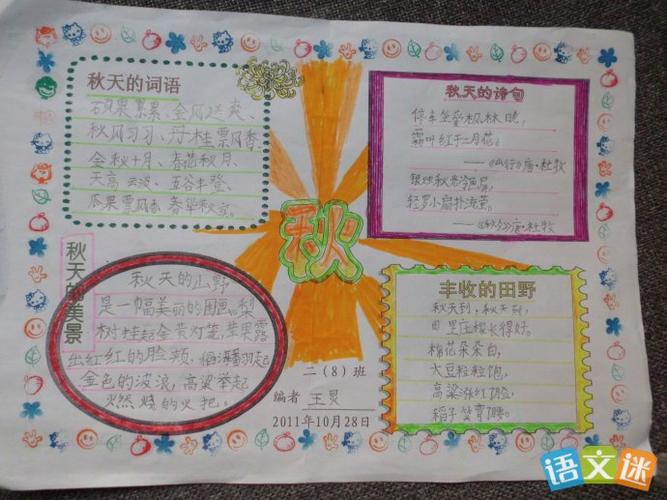 秋天的词语
硕果累累、金风送爽、
秋风习习、丹桂飘香、
金秋十月、春花秋月、
天高云淡、五谷丰登、
瓜果飘香、春华秋实。
秋天的诗句
停车坐爱枫林晚,
霜叶红于二月花。
——《山行》唐·杜牧
银烛秋光冷画屏,
轻罗小扇扑流萤。
——《秋夕》唐·杜牧
秋
秋天的美景
秋天的山野
是一幅美丽的图画。梨
树挂起金黄灯笼,苹果露
出红红的脸颊,稻海翻起
金色的波浪,高粱举起
燃烧的火把。
丰收的田野
秋天到,秋天到,
田里庄稼长得好。
棉花朵朵白,
大豆粒粒饱,
高粱涨红脸,
稻子笑弯腰。
二(8)班
编者 王
2011年10月28日
语文迷